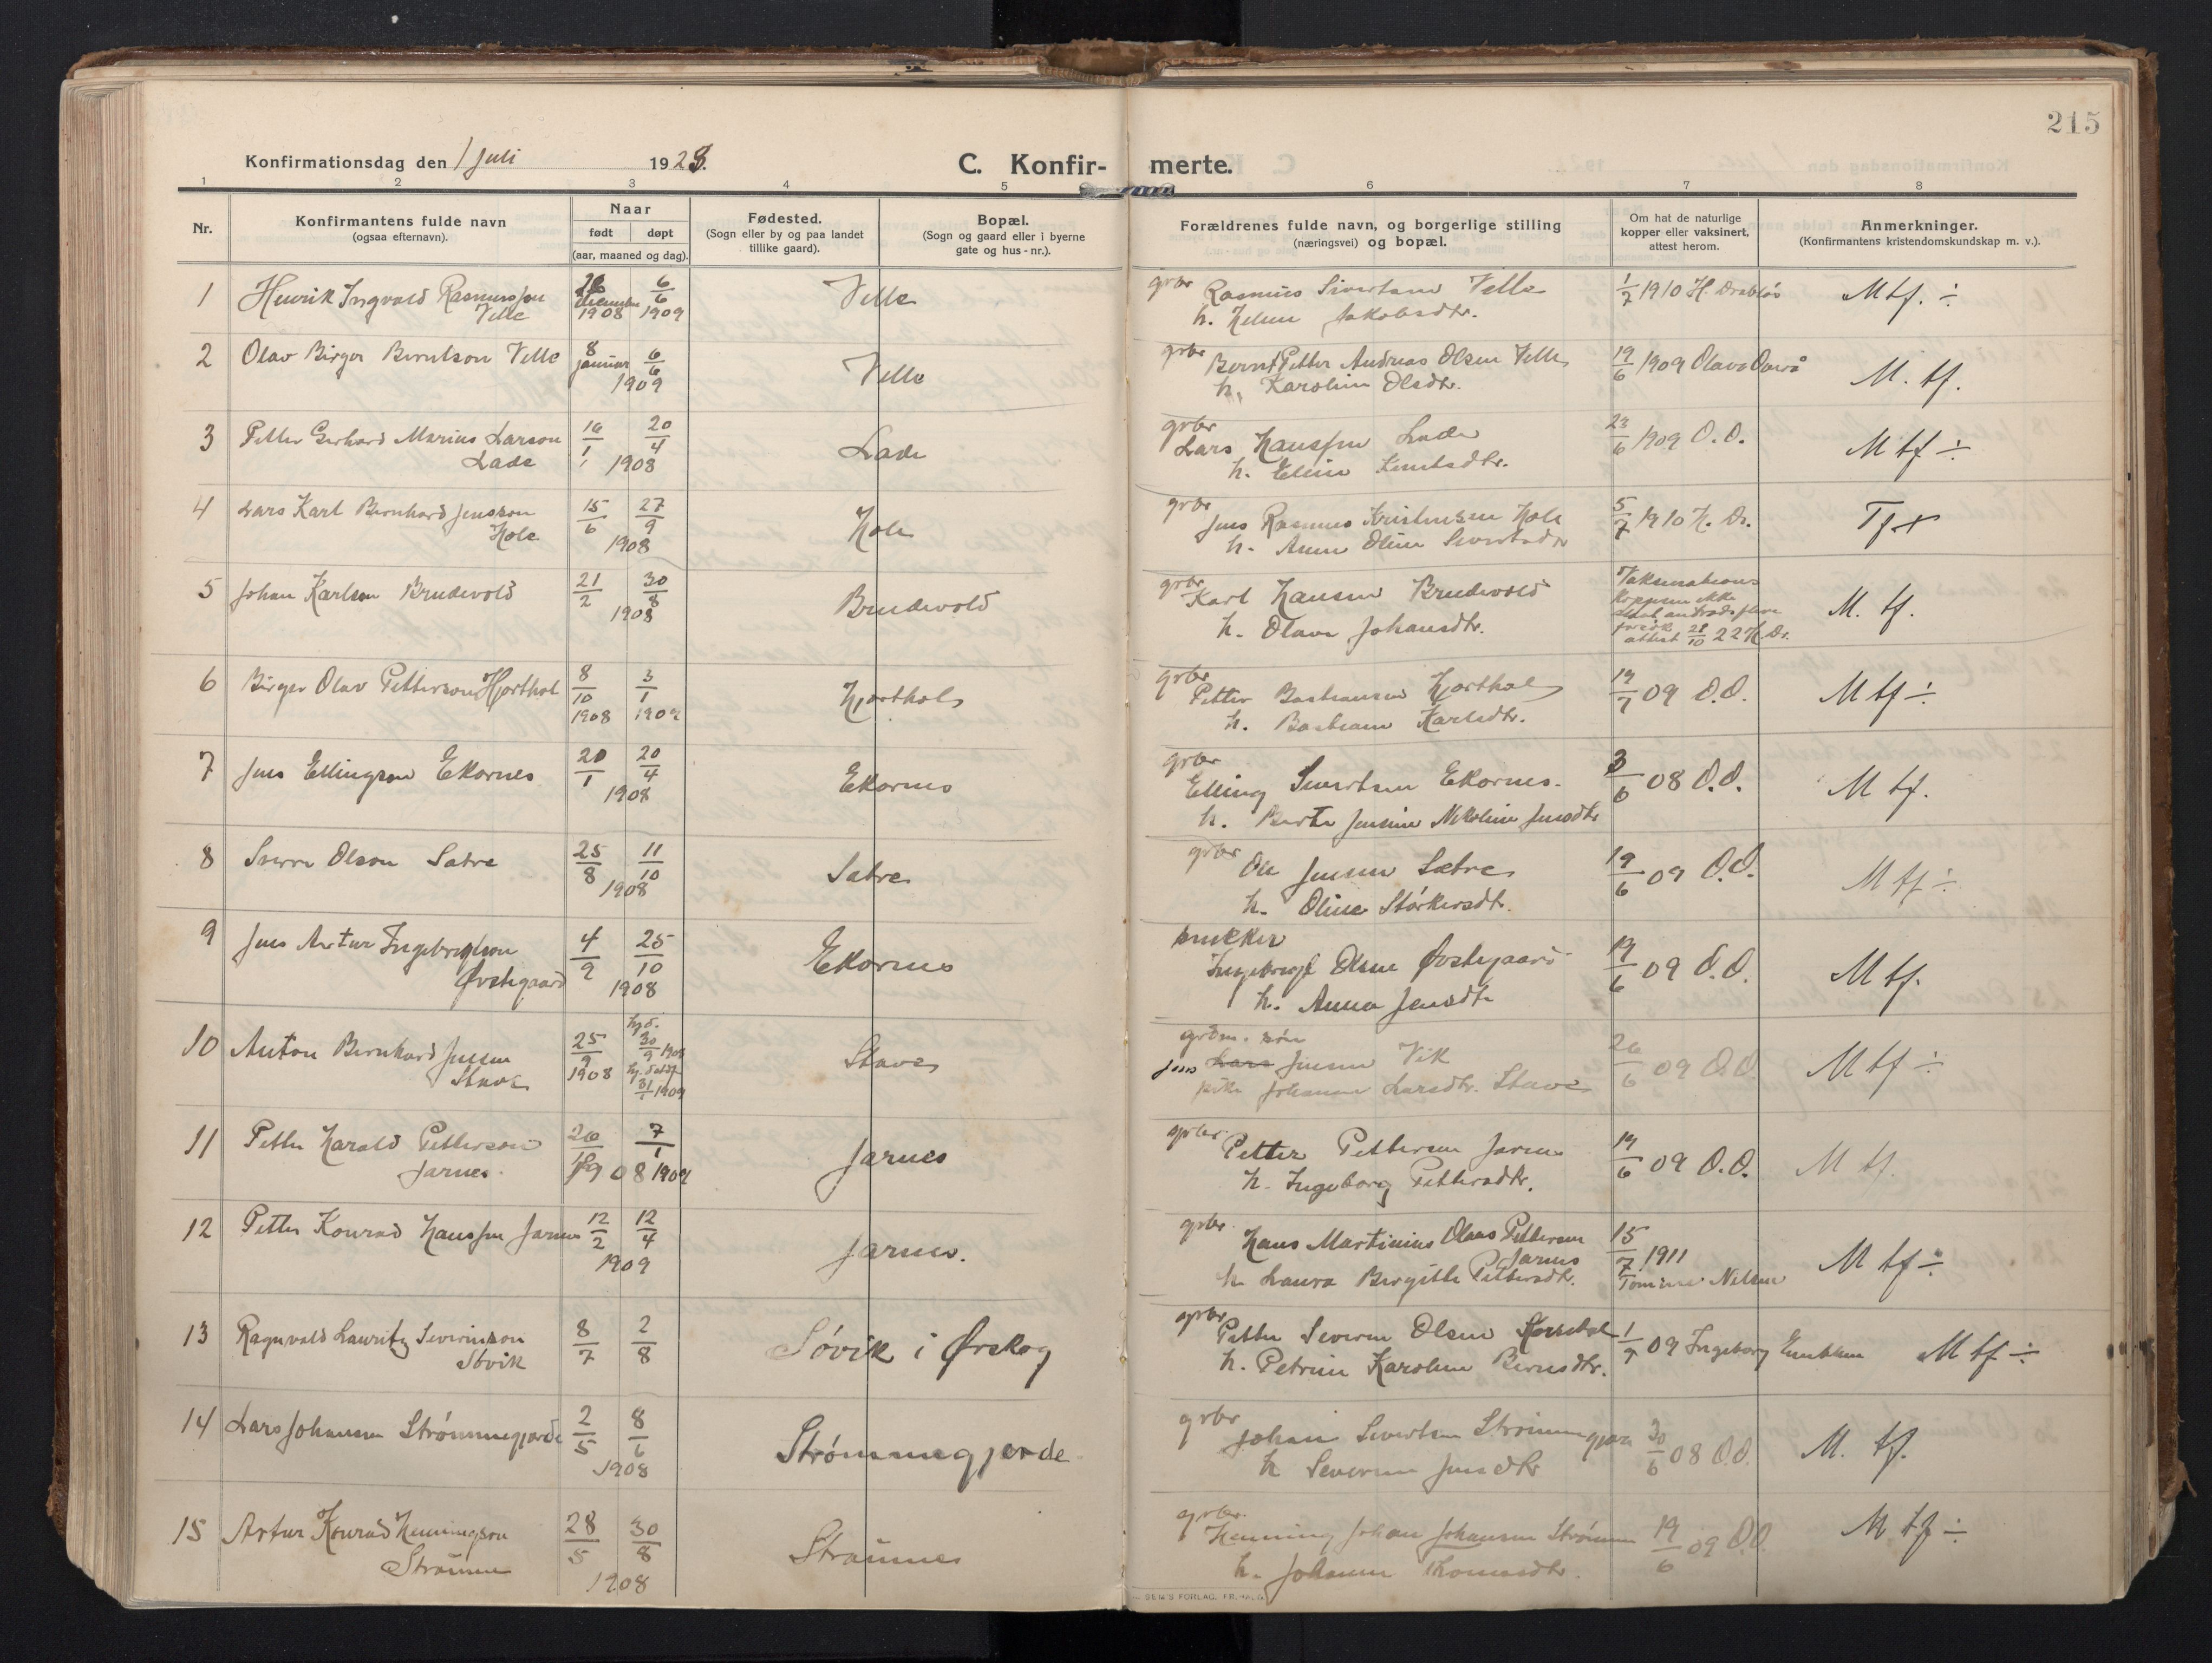 215
Konfirmationsdag den 1 Juli 1923.
C. Konfirmerte.
1 2 3 4 5 6 7 8
Nr.
Konfirmantens fulde navn
(ogsaa efternavn).
Naar
født døpt
(aar, maaned og dag).
Fødested.
(Sogn eller by og paa landet
tillike gaard).
Bopæl.
(Sogn og gaard eller i byerne
gate og hus-nr.).
Forældrenes fulde navn, og borgerlige stilling
(næringsvei) og bopæl.
Om hat de naturlige
kopper eller vaksinert,
attest herom.
Anmerkninger.
(Konfirmantens kristendomskundskap m. v.).
1 Henrik Ingvald Rasmussøn
Velle
december 1908 6/6 1909
Velle
grbr Rasmus Sivertsen Velle
h. Jakobsdtr.
1/7 1910 H. Drabløs
Mtf. ÷
2 Olav Birger Berntson Velle
8 januar 6/6
1909
Velle
grbr Bernt Petter Andreas Olsen Velle
h. Karoline Olsdtr.
19/6 1909
M. tf.
3 Petter Gerhard Marius Larson
Lade
16/1 20/4
1908
Lade
grbr
Lars Hanssen Lade
h. Eline Knutsdtr.
23/6 1909 O.O.
M tf ÷
4 Lars Karl Bernhard Jensson
Hole
15/6 27/9
1908
Hole
grbr
Jens Rasmus Kristensen Hole
h. Anne Oline Sivertsdtr
5/7 1910 H. Dr.
Tf +
5 Johan Karlson Brudevold
21/2 30/8
1908
Brudevold
grbr
Karl Hansen Brudevold
h. Olava Johansdtr.
Vaksinations
koppene ikke
attest 28/10 22 H. Dr.
M. tf.
6 Birger Olav Petterson Hjorthol
8/10 1908 3/1 1909
Hjorthol
grbr
Petter Bastiansen Hjorthol
h. Bastiane Karlsdtr.
19/7 09 O.O.
M tf ÷
7 Jens Ellingson Ekornes
20/1 20/4
1908
Ekornes
grbr
Elling Sivertsen Ekornes.
h. Berte Jensine Nikoline Jensdtr
3/6 08 O.O.
M tf.
8 Sverre Olson Satre
25/8 11/10
1908
Satre
grbr
Ole Jensen Sætre
h. Oline Størkersdtr.
19/6 09 O.O.
M tf ÷
9 Jens Artur Ingebrigtson
Øvstegaard
4/9 25/10
1908
Ekornes
snekker
Ingebrigt Olsen Øvstegaard
h. Anna Jensdtr
19/6 09 O.O.
M tf.
10 Anton Bernhard Jensen
Stave
25/9 1908 hj.d. 30/9 1908
31/1 1909
Stave
grdm. søn
Jens Lars Jensen Vik
pike Johanne Larsdtr. Stave
26/6 09 O.O.
M tf ÷
11 Petter Harald Petterson
Jarnes.
1908 7/1 1909
Jarnes
grbr.
Petter Pettersen Jarnes
h. Ingeborg Pettersdtr.
19/6 09 O.O.
M tf.
12 Petter Konrad Hanssen Jarnes
12/2 12/4
1909
Jarnes.
grbr.
Hans Martinius Olaus Pettersen
Jarnes
h Laura Bergitte Pettersdtr.
15/7 1911
Tomine Nilsen
M tf ÷
13 Ragnvald Lauritz Severinson
Søvik
8/7 2/8
Søvik i Ørskog
grbr
Petter Severin Olsen
h. Petrine Karoline Berns dtr.
1/9 09 Ingeborg Emblem
M tf ÷
14 Lars Johansen Strømmegjerde
2/5 8/6
1908
Strømmegjerde
grbr
Johan Sivertsen Strømmegjerde
h Severine Jensdtr
30/6 08 O.O.
M. tf.
15 Artur Konrad Henningson
Straume
28/5 30/8
1908
Straumes
grbr.
Henning Johan Johansen Strømme
h. Johanne Thomasdtr.
19/6 09 O.O.
M tf ÷
SEM'S FORLAG, FR.HALD